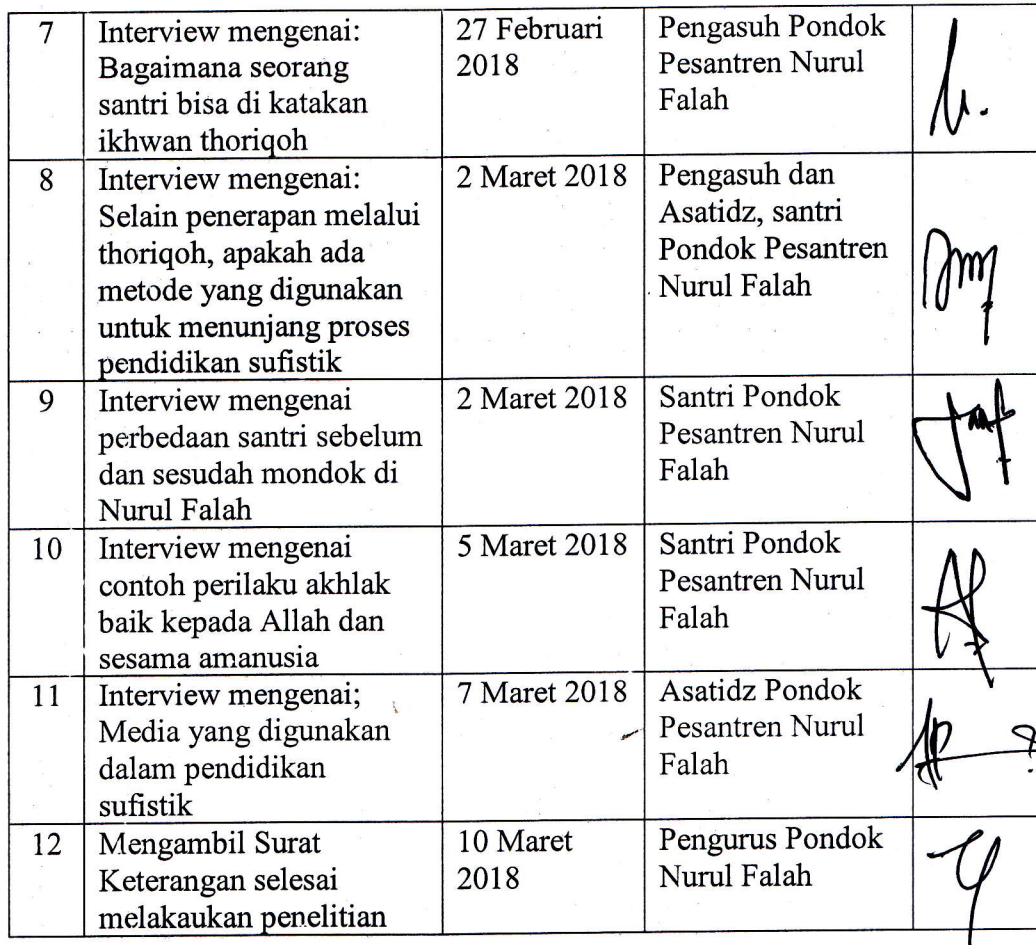 7
Interview mengenai:
Bagaimana seorang
santri bisa di katakan
ikhwan thoriqoh
27 Februari
2018
Pengasuh Pondok
Pesantren Nurul
Falah
8
Interview mengenai:
Selain penerapan melalui
thoriqoh, apakah ada
metode yang digunakan
untuk menunjang proses
pendidikan sufistik
2 Maret 2018
Pengasuh dan
Asatidz, santri
Pondok Pesantren
Nurul Falah
9
Interview mengenai
perbedaan santri sebelum
dan sesudah mondok di
Nurul Falah
2 Maret 2018
Santri Pondok
Pesantren Nurul
Falah
10
Interview mengenai
contoh perilaku akhlak
baik kepada Allah dan
sesama amanusia
5 Maret 2018
Santri Pondok
Pesantren Nurul
Falah
11
Interview mengenai;
Media yang digunakan
dalam pendidikan
sufistik
7 Maret 2018
Asatidz Pondok
Pesantren Nurul
Falah
12
Mengambil Surat
Keterangan selesai
melakaukan penelitian
10 Maret
2018
Pengurus Pondok
Nurul Falah